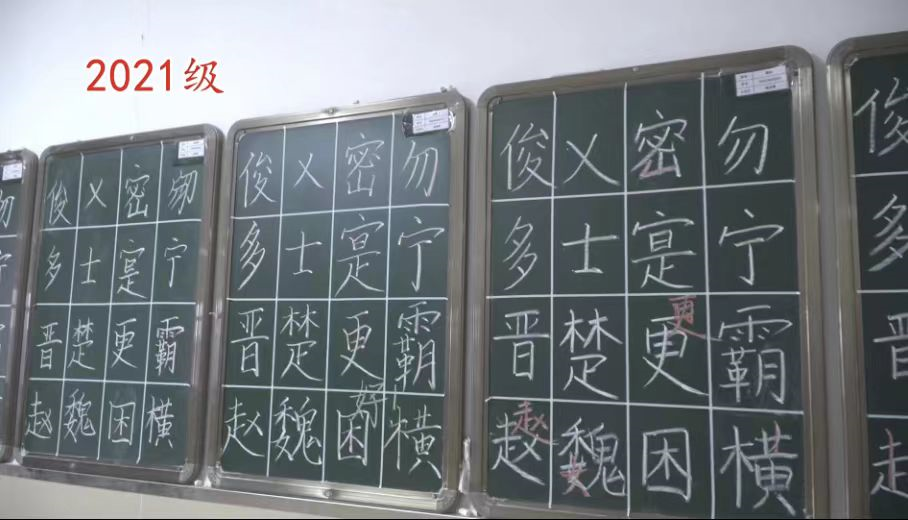 2021级
勿
俊乂密勿
多士寔宁
晋楚更霸
赵魏困横
俊乂密勿
多士寔宁
晋楚更霸
赵魏困横
好
俊乂密勿
多士寔宁
晋楚更霸
更
赵魏困横
赵
女
俊
多
晋